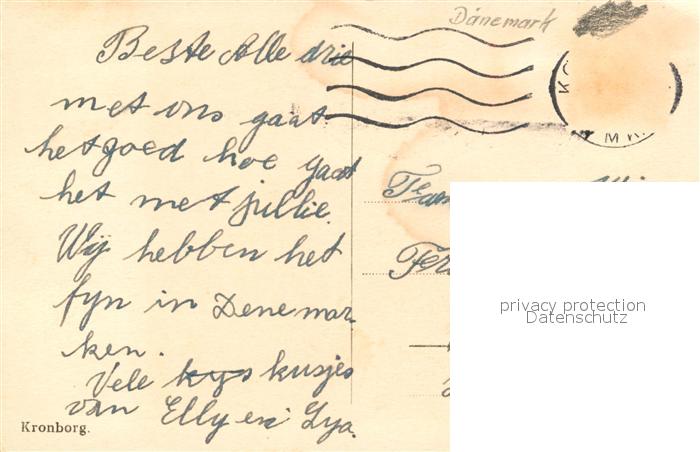 Dänemark
Beste Alle drie
met ons gaat
het goed hoe gaat
het met jullie.
Wij hebben het
fyn in Denemar-
ken.
Vele kys kusjes
van Elly en Lya.
Kronborg.
Fam
privacy protection
Datenschutz